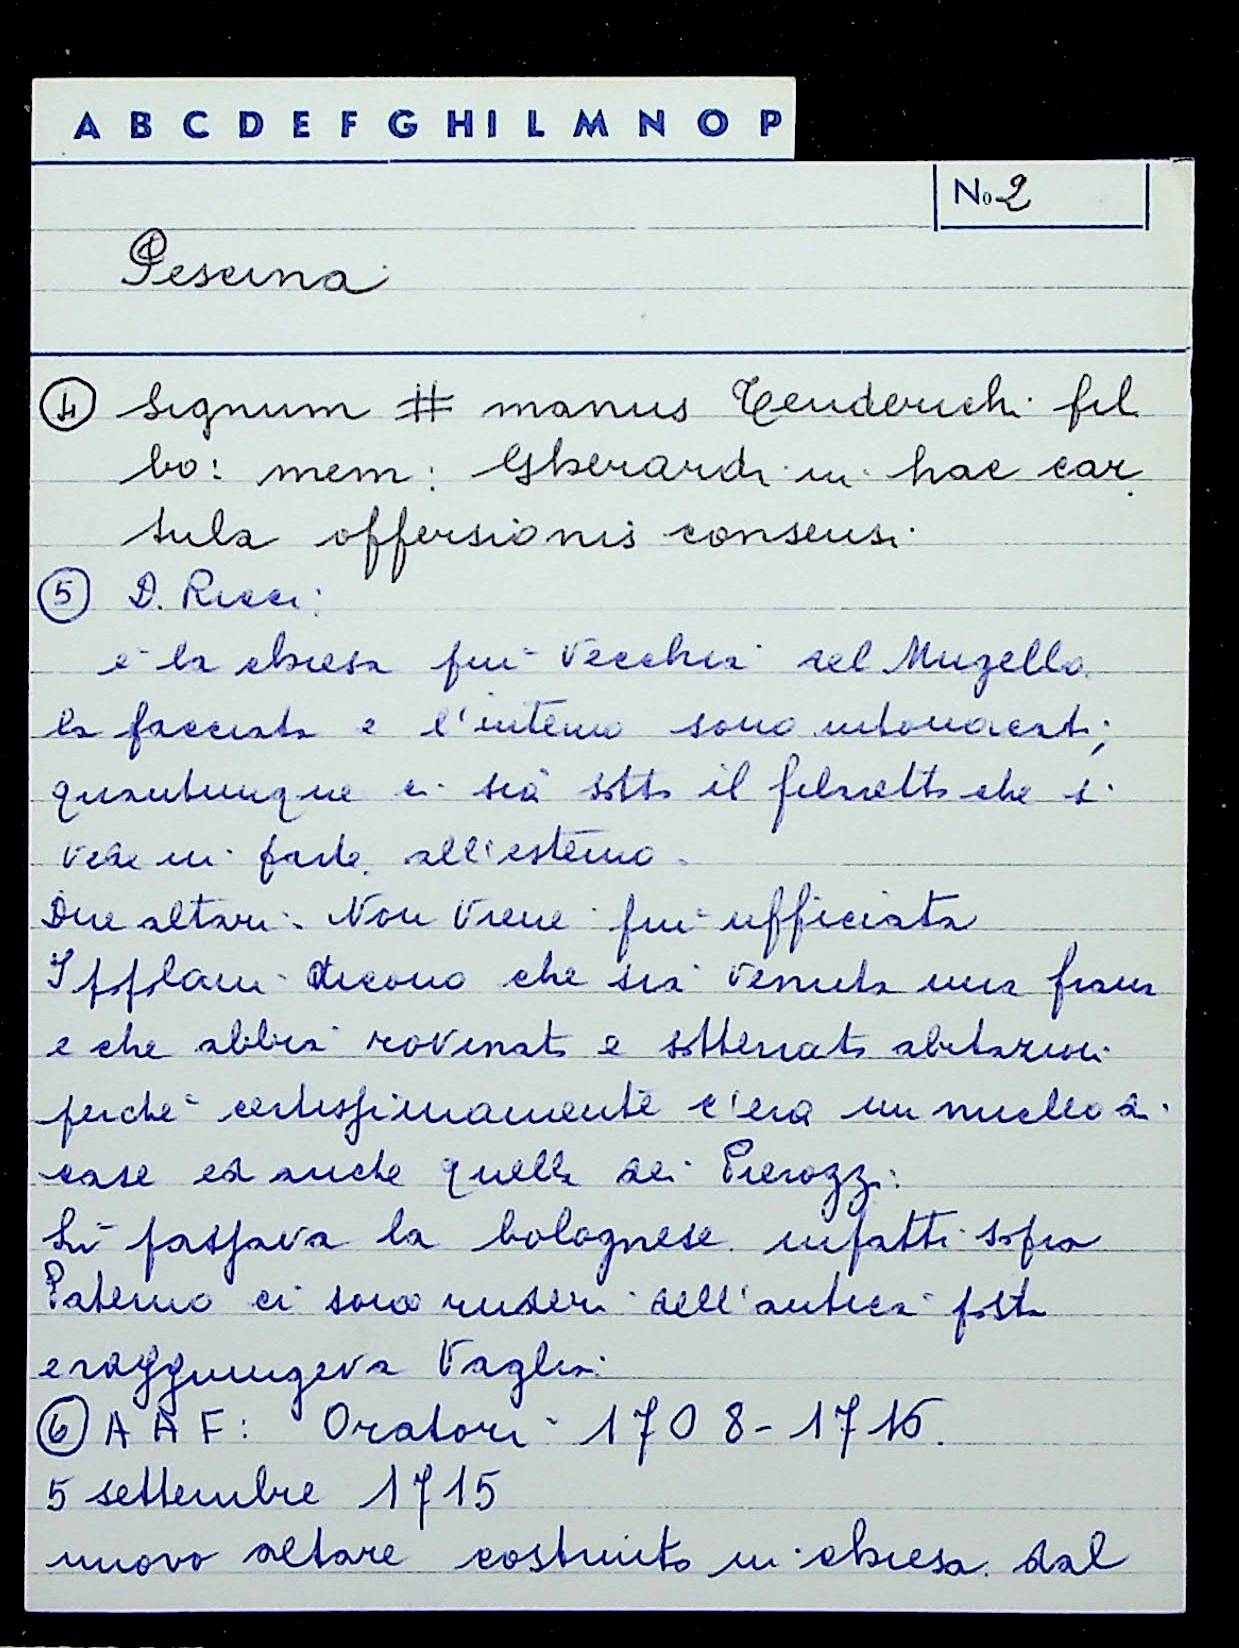 A B C D E F G H I L M N O P
No 2
Pescina
4 Signum # manus Teuderichi fil
bo: mem: Gherardi in hac car
tula offersionis consensi
5 D. Ricci:
è la chiesa più vecchia del Mugello
la facciata e l'interno sono intonacati;
quantunque ci sia sotto il filaretto che si
vede in parte all'esterno.
Due altari. Non viene più ufficiata
I popolani dicono che sia venuta una frana
e che abbia rovinato e sotterrato abitazioni
perché certissimamente c'era un nucleo di
case ed anche quella dei Pierozzi.
Lì passava la bolognese infatti sopra
Paterno ci sono ruderi dell'antica posta
e raggiungeva Vaglia.
6 A A F: Oratori 1708-1716.
5 settembre 1715
nuovo altare costruito in chiesa dal